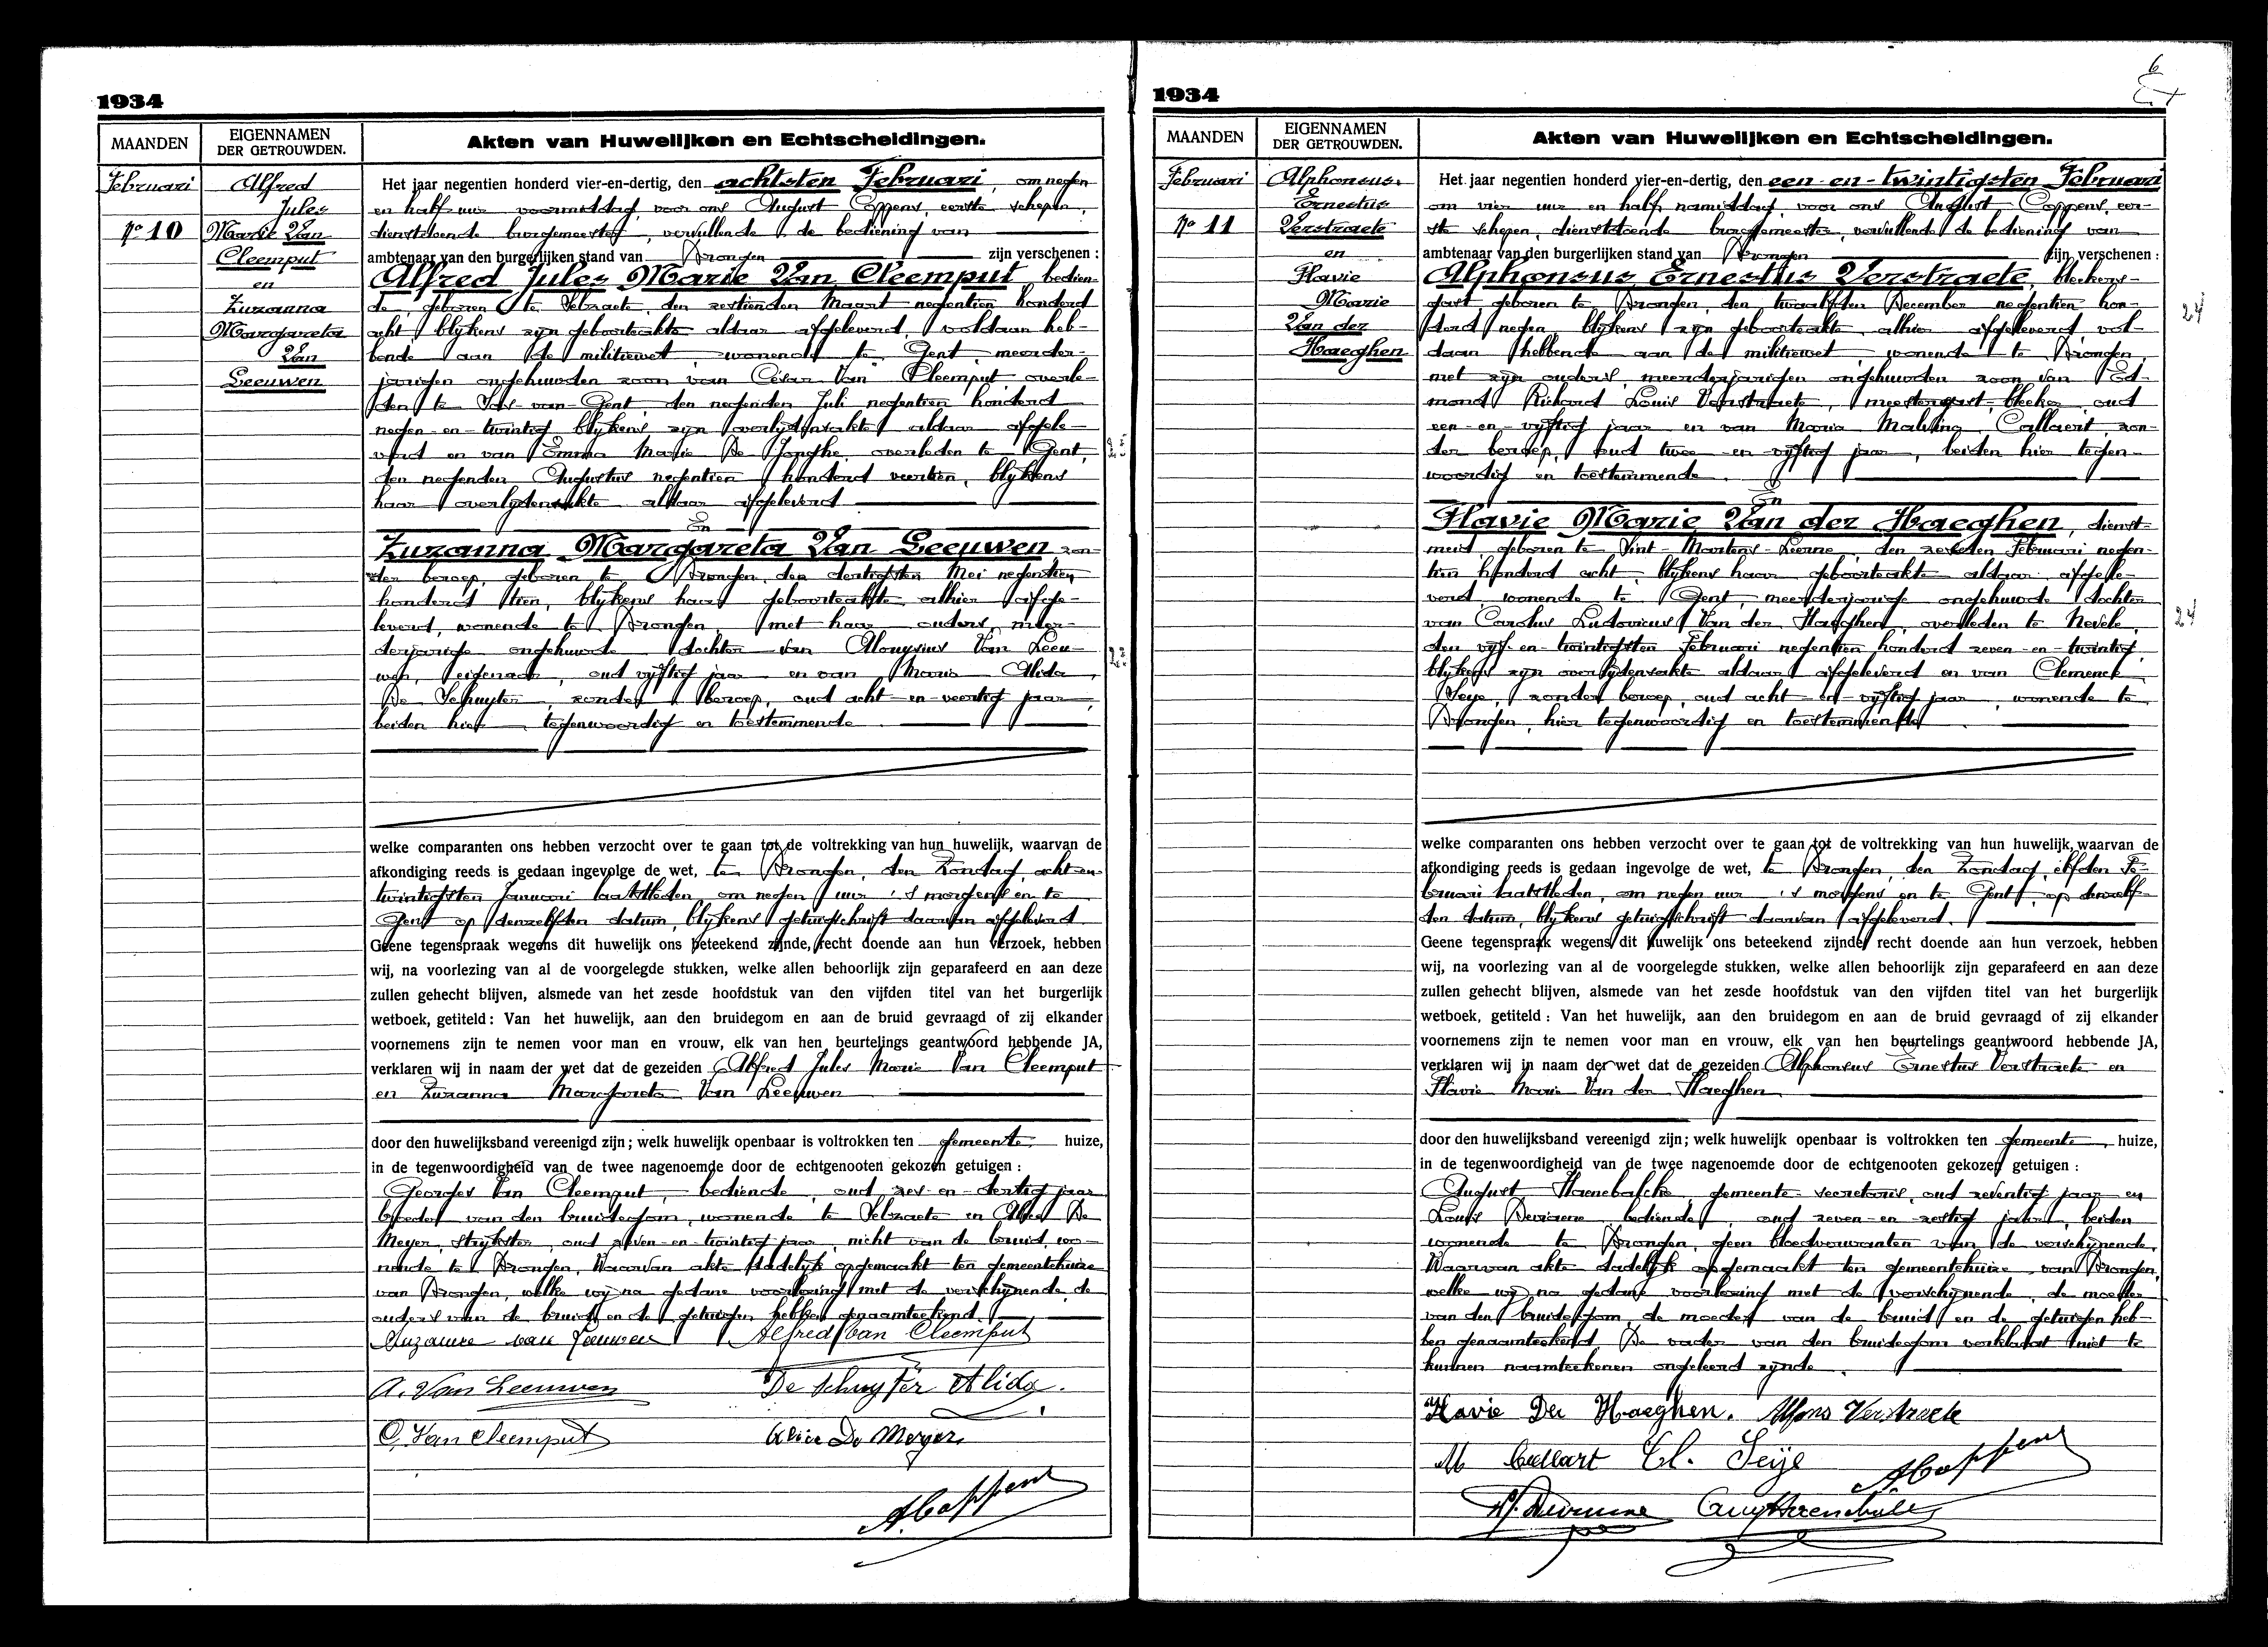 1934
MAANDEN
EIGENNAMEN
DER GETROUWDEN.
Akten van Huwelijken en Echtscheidingen.
Februari
No 10
Alfred
Jules
Marie Van
Cleemput
en
Zuzanna
Margareta
Van
Leeuwen
Het jaar negentien honderd vier-en-dertig, den achtsten Februari, om negen
en half uur voormiddag, voor ons August Coppens, eerste schepen,
dienstdoende burgemeester, vervullende de bediening van
ambtenaar van den burgerlijken stand van Drongen zijn verschenen :
Alfred Jules Marie Van Cleemput, bedien-
de, geboren te Selzaete, den zestienden Maart negentien honderd
acht, blijkens zijn geboorteakte aldaar afgeleverd, voldaan heb-
bende aan de militiewet, wonende te Gent, meerder-
jarigen ongehuwden zoon van César Van Cleemput, overle-
den te Sas-van-Gent, den negenden Juli negentien honderd
negen-en-twintig blijkens zijn overlijdensakte aldaar afgele-
verd en van Emma Marie De Jonghe, overleden te Gent,
den negenden Augustus negentien honderd veertien, blijkens
haar overlijdensakte aldaar afgeleverd
En
Zuzanna Margareta Van Leeuwen, zon-
der beroep, geboren te Drongen, den dertigsten Mei negentien
honderd tien, blijkens haar geboorteakte alhier afge-
leverd, wonende te Drongen, met haar ouders, meer-
derjarige ongehuwde dochter van Aloysius Van Leeu-
wen, eigenaar, oud vijftig jaar en van Maria Alida
De Schuyter, zonder beroep, oud acht-en-veertig jaar,
beiden hier tegenwoordig en toestemmende
welke comparanten ons hebben verzocht over te gaan tot de voltrekking van hun huwelijk, waarvan de
afkondiging reeds is gedaan ingevolge de wet, te Drongen, den Zondag, acht-en-
twintigsten Januari laatstleden, om negen uur 's morgens en te
Gent op denzelfden datum, blijkens getuigschrift daarvan afgeleverd.
Geene tegenspraak wegens dit huwelijk ons beteekend zijnde, recht doende aan hun verzoek, hebben
wij, na voorlezing van al de voorgelegde stukken, welke allen behoorlijk zijn geparafeerd en aan deze
zullen gehecht blijven, alsmede van het zesde hoofdstuk van den vijfden titel van het burgerlijk
wetboek, getiteld : Van het huwelijk, aan den bruidegom en aan de bruid gevraagd of zij elkander
voornemens zijn te nemen voor man en vrouw, elk van hen beurtelings geantwoord hebbende JA,
verklaren wij in naam der wet dat de gezeiden Alfred Jules Marie Van Cleemput
en Zuzanna Margareta Van Leeuwen
door den huwelijksband vereenigd zijn ; welk huwelijk openbaar is voltrokken ten gemeente huize,
in de tegenwoordigheid van de twee nagenoemde door de echtgenooten gekozen getuigen :
Georges Van Cleemput, bediende, oud zes-en-dertig jaar
broeder van den bruidegom, wonende te Selzaete en Alice De
Meyer, strijkster, oud zeven-en-twintig jaar, nicht van de bruid, wo-
nende te Drongen, Waarvan akte dadelijk opgemaakt ten gemeentehuize
van Drongen, welke wij na gedane voorlezing met de verschijnende, de
ouders van de bruid en de getuigen hebben genaamteekend.
Suzanne van Leeuwen Alfred Van Cleemput
A. Van Leeuwen De Schuyter Alida.
G. Van Cleemput Alice De Meyer
A. Coppens
1934
MAANDEN
EIGENNAMEN
DER GETROUWDEN.
Akten van Huwelijken en Echtscheidingen.
Februari
No 11
Alphonsus
Ernestus
Verstraete
en
Flavie
Marie
Van der
Haeghen
Het jaar negentien honderd vier-en-dertig, den een-en-twintigsten Februari
om vier uur en half namiddag, voor ons August Coppens, eer-
ste schepen, dienstdoende burgemeester, vervullende de bediening van
ambtenaar van den burgerlijken stand van Drongen zijn verschenen :
Alphonsus Ernestus Verstraete, bleekers-
gast, geboren te Drongen, den twaalfden December negentien hon-
derd negen, blijkens zijn geboorteakte alhier afgeleverd vol-
daan hebbende aan de militiewet, wonende te Drongen,
met zijn ouders, meerderjarigen ongehuwden zoon van Ed-
mond Richard Louis Verstraete, meestergast-bleeker, oud
een-en-vijftig jaar en van Maria Malvina Callaert, zon-
der beroep, oud twee-en-vijftig jaar, beiden hier tegen-
woordig en toestemmende.
En
Flavie Marie Van der Haeghen, dienst-
meid, geboren te Sint-Martens-Leerne, den zesden Februari negen-
tien honderd acht, blijkens haar geboorteakte aldaar afgele-
verd, wonende te Gent, meerderjarige ongehuwde dochter
van Carolus Ludovicus Van der Haeghen, overleden te Nevele,
den vijf-en-twintigsten Februari negentien honderd zeven-en-twintig,
blijkens zijn overlijdensakte aldaar afgeleverd en van Clemence
Seye, zonder beroep, oud acht-en-vijftig jaar, wonende te
Drongen, hier tegenwoordig en toestemmende
welke comparanten ons hebben verzocht over te gaan tot de voltrekking van hun huwelijk, waarvan de
afkondiging reeds is gedaan ingevolge de wet, te Drongen, den Zondag, elfden Fe-
bruari laatstleden, om negen uur 's morgens en te Gent, op denzelf-
den datum, blijkens getuigschrift daarvan afgeleverd.
Geene tegenspraak wegens dit huwelijk ons beteekend zijnde, recht doende aan hun verzoek, hebben
wij, na voorlezing van al de voorgelegde stukken, welke allen behoorlijk zijn geparafeerd en aan deze
zullen gehecht blijven, alsmede van het zesde hoofdstuk van den vijfden titel van het burgerlijk
wetboek, getiteld : Van het huwelijk, aan den bruidegom en aan de bruid gevraagd of zij elkander
voornemens zijn te nemen voor man en vrouw, elk van hen beurtelings geantwoord hebbende JA,
verklaren wij in naam der wet dat de gezeiden Alphonsus Ernestus Verstraete en
Flavie Marie Van der Haeghen
door den huwelijksband vereenigd zijn ; welk huwelijk openbaar is voltrokken ten gemeente huize,
in de tegenwoordigheid van de twee nagenoemde door de echtgenooten gekozen getuigen :
August Haenebalcke, gemeente-secretaris, oud zeventig jaar en
Louis bediende, oud zeven-en-zestig jaar, beiden
wonende te Drongen, geen bloedverwanten van de verschijnende,
Waarvan akte dadelijk opgemaakt ten gemeentehuize van Drongen,
welke wij na gedane voorlezing met de verschijnende, de moeder
van den bruidegom, de moeder van de bruid en de getuigen heb-
ben genaamteekend. De vader van den bruidegom verklaart niet te
kunnen naamteekenen ongeleerd zijnde.
Flavie Der Haeghen. Alfons Verstraete
M Callaert Cl. Seije A. Coppens